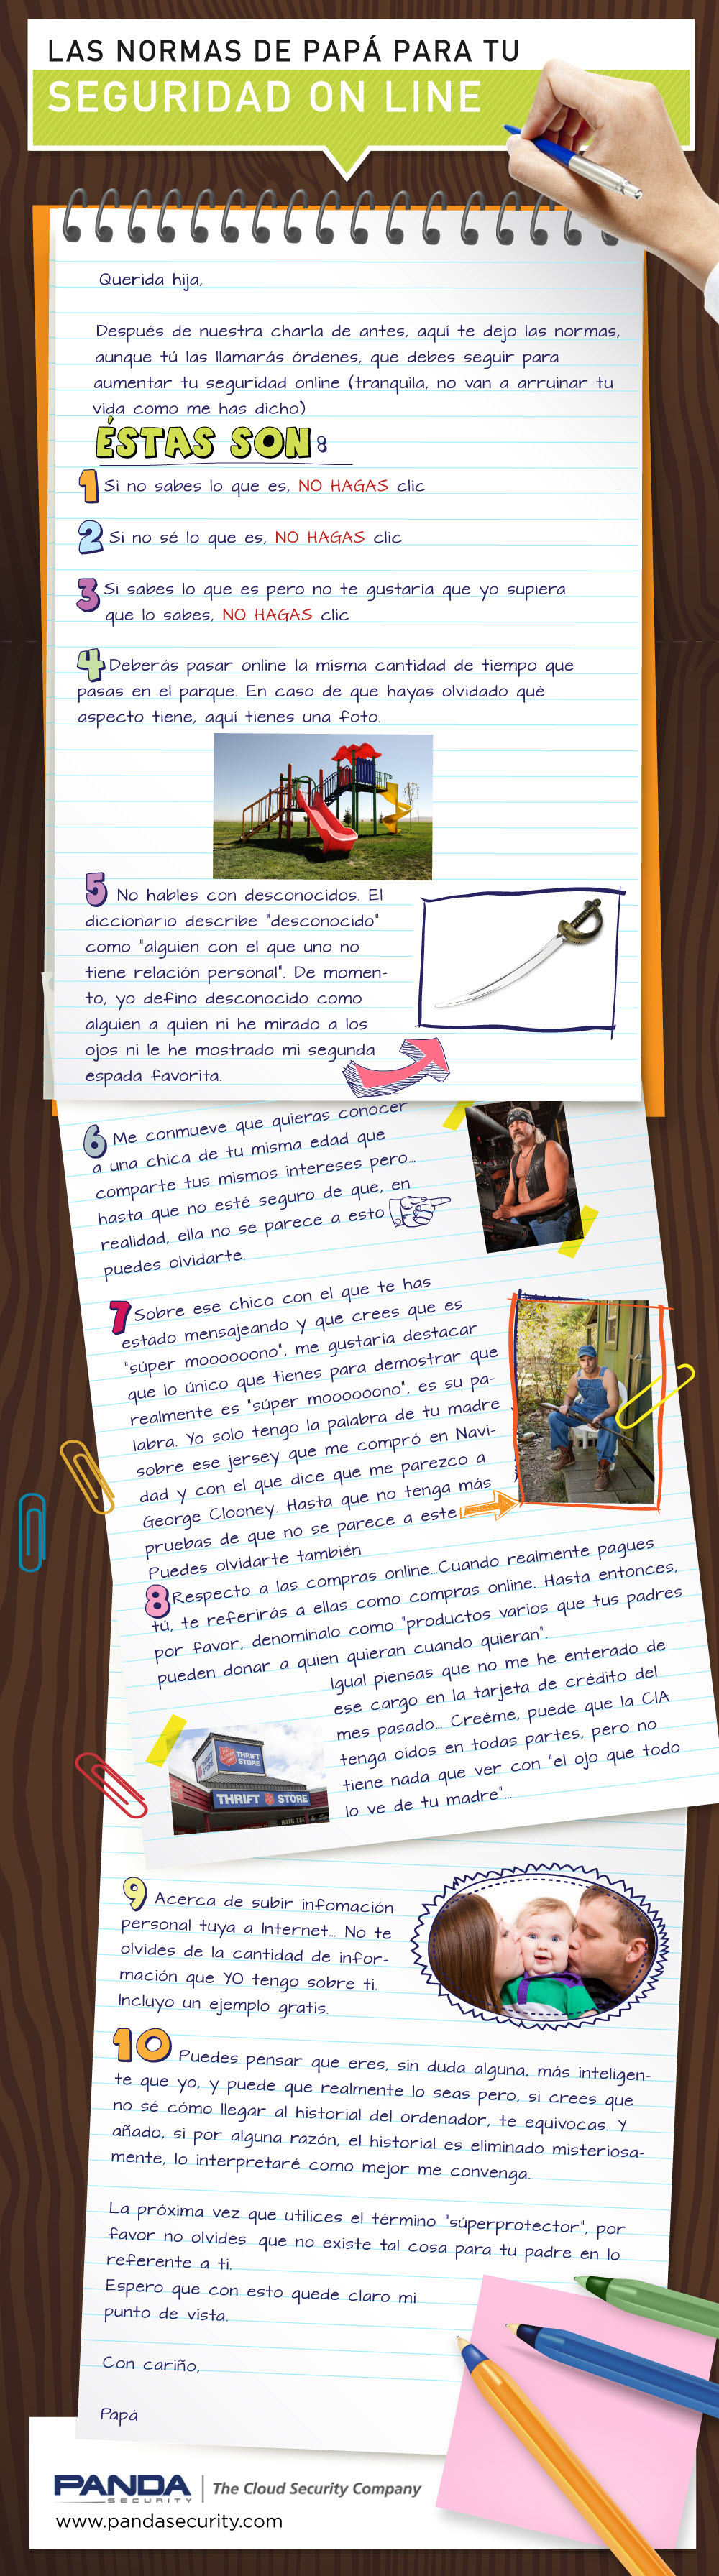 LAS NORMAS DE PAPÁ PARA TU
SEGURIDAD ON LINE
Querida hija,
Después de nuestra charla de antes, aquí te dejo las normas,
aunque tú las llamarás órdenes, que debes seguir para
aumentar tu seguridad online (tranquila, no van a arruinar tu
vida como me has dicho)
ÉSTAS SON:
1 Si no sabes lo que es, NO HAGAS clic
2 Si no sé lo que es, NO HAGAS clic
3 Si sabes lo que es pero no te gustaría que yo supiera
que lo sabes, NO HAGAS clic
4 Deberás pasar online la misma cantidad de tiempo que
pasas en el parque. En caso de que hayas olvidado qué
aspecto tiene, aquí tienes una foto.
5 No hables con desconocidos. El
diccionario describe "desconocido"
como "alguien con el que uno no
tiene relación personal". De momen-
to, yo defino desconocido como
alguien a quien ni he mirado a los
ojos ni le he mostrado mi segunda
espada favorita.
6 Me conmueve que quieras conocer
a una chica de tu misma edad que
comparte tus mismos intereses pero...
hasta que no esté seguro de que, en
realidad, ella no se parece a esto
puedes olvidarte.
7 Sobre ese chico con el que te has
estado mensajeando y que crees que es
"súper moooooono", me gustaría destacar
que lo único que tienes para demostrar que
realmente es "súper moooooono", es su pa-
labra. Yo solo tengo la palabra de tu madre
sobre ese jersey que me compró en Navi-
dad y con el que dice que me parezco a
George Clooney. Hasta que no tenga más
pruebas de que no se parece a este
Puedes olvidarte también
8 Respecto a las compras online...Cuando realmente pagues
tú, te referirás a ellas como compras online. Hasta entonces,
por favor, denominalo como "productos varios que tus padres
pueden donar a quien quieran cuando quieran".
Igual piensas que no me he enterado de
ese cargo en la tarjeta de crédito del
mes pasado... Creéme, puede que la CIA
tenga oídos en todas partes, pero no
tiene nada que ver con "el ojo que todo
lo ve de tu madre"...
THRIFT
STORE
THRIFT STORE
9 Acerca de subir infomación
personal tuya a Internet... No te
olvides de la cantidad de infor-
mación que YO tengo sobre ti.
Incluyo un ejemplo gratis.
10 Puedes pensar que eres, sin duda alguna, más inteligen-
te que yo, y puede que realmente lo seas pero, si crees que
no sé cómo llegar al historial del ordenador, te equivocas. Y
añado, si por alguna razón, el historial es eliminado misteriosa-
mente, lo interpretaré como mejor me convenga.
La próxima vez que utilices el término "súperprotector", por
favor no olvides que no existe tal cosa para tu padre en lo
referente a ti.
Espero que con esto quede claro mi
punto de vista.
Con cariño,
Papá
PANDA
SECURITY
The Cloud Security Company
www.pandasecurity.com